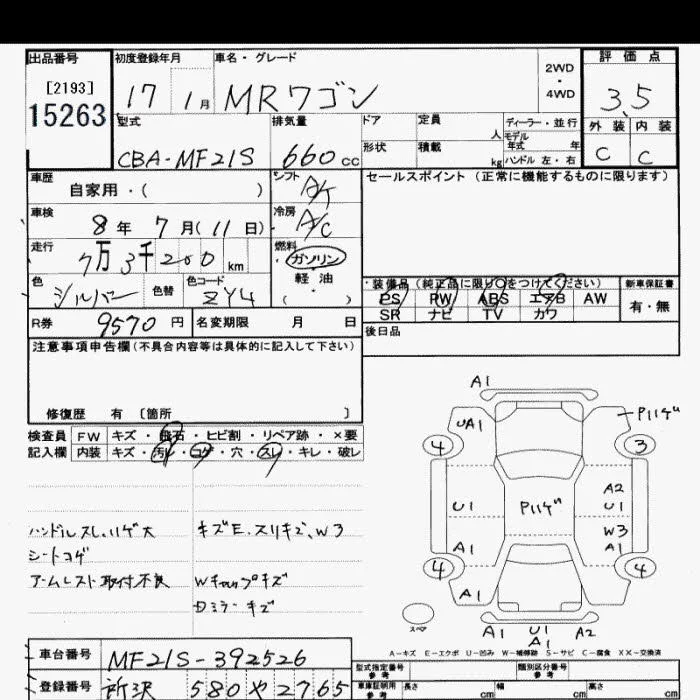 出品番号 初度登録年月 車名・グレード 2WD・4WD 評価点
[2193]
15263 17 1月 MRワゴン 3.5
型式 排気量 ドア 定員 人 ディーラー・並行 外装 内装
CBA-MF21S 660cc 形状 積載 kg モデル年式 年 ハンドル 左・右 C C
車歴 自家用・( ) シフト A/T セールスポイント (正常に機能するものに限ります)
車検 8年 7月(11日) 冷房 A/C
走行 7万3千200km 燃料 ガソリン
軽・油
( )
色 シルバー 色替 色コード ZY4
装備品(純正品に限り○をつけてください) 新車保証書
PS PW ABS エアB AW 有・無
SR ナビ TV カワ
R券 9570円 名変期限 月 日 後日品
注意事項申告欄(不具合内容等は具体的に記入して下さい)
修復歴 有 〔箇所 〕
検査員 FW キズ・飛石・ヒビ割・リペア跡・×要
記入欄 内装 キズ・汚レ・コゲ・穴・スレ・キレ・破レ
ハンドルスレ、ハゲ大 キズE、スリキズ、W3
シートコゲ
アームレスト取付不良 Wキャップキズ
Dミラーキズ
A1
UA1 Pハゲ
4 3
U1 Pハゲ A2
U1
A1 W3
A1
4 4
A1
スペア
A1 U1 A2
A1
A-キズ E-エクボ U-凹み W-補修跡 S-サビ C-腐食 XX-交換済
車台番号 MF21S-392526
型式指定番号 類別区分番号
登録番号 所沢 580 や 2765
車庫証明用参考 長さ cm 幅 cm 高さ cm